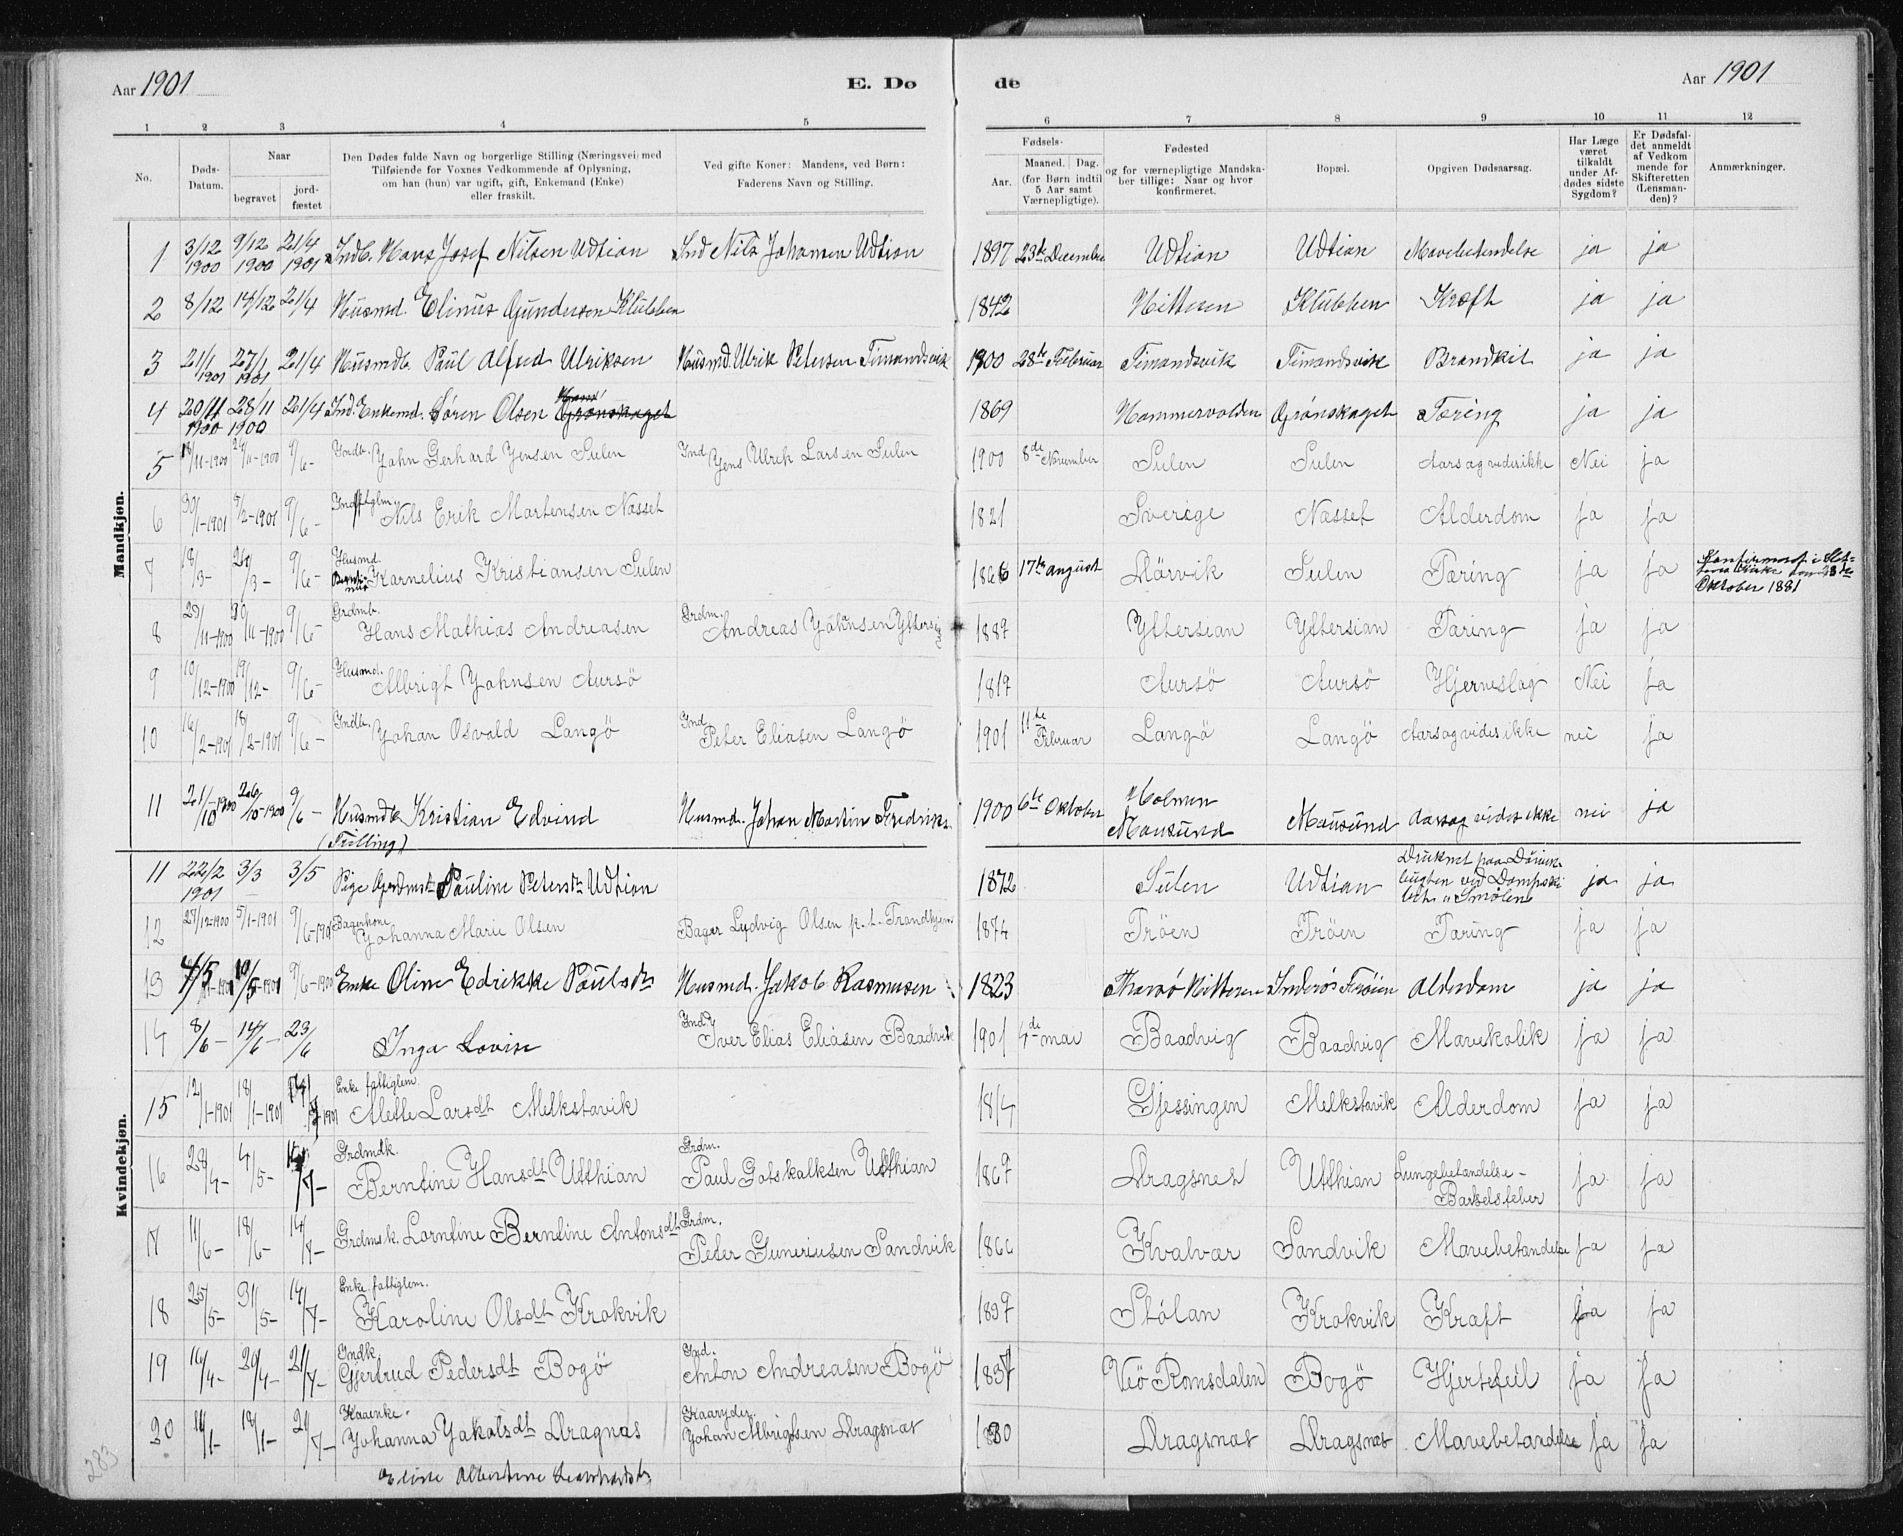 Aar 1901
E. Dø
de
Aar 1901
1 2 3 4 5 6 7 8 9 10 11 12
No.
Døds-Datum.
Naar
begravet
jord-fæstet
Den Dødes fulde Navn og borgerlige Stilling (Næringsvei) med
Tilføiende for Voxnes Vedkommende af Oplysning,
om han (hun) var ugift, gift, Enkemand (Enke)
eller fraskilt.
Ved gifte Koner: Mandens, ved Børn:
Faderens Navn og Stilling.
Fødsels-
Aar.
Maaned. Dag.
(for Børn indtil
5 Aar samt
Værnepligtige).
Fødested
og for værnepligtige Mandska-
ber tillige: Naar og hvor
konfirmeret.
Bopæl.
Opgiven Dødsaarsag.
Har Læge
været
tilkaldt
under Af-
dødes sidste
Sygdom?
Er Dødsfal-
det anmeldt
af Vedkom
mende for
Skifteretten
(Lensman-
den)?
Anmærkninger.
Mandkjøn.
1 3/12 1900 9/12 1900 21/4 1901 Indb. Hans Josef Nilsen Udtian Ind Nils Johansen Udtian 1897 23de December Udtian Udtian Mavebetendelse ja ja
2 8/12 14/12 21/4 Husmd. Elinus Gundersen Klubben 1842 Hitteren Klubben Kræft ja ja
3 21/1 1901 27/1 1901 21/4 Husmdb. Paul Alfred Ulriksen Husmd. Ulrik Petersen Timandsvik 1900 28de Februar Timandsvik Timandsvik Brandkit ja ja
4 20/11 1900 28/11 1900 21/4 Ind. Enkemd. Søren Olsen Grönskaget 1869 Hammervolden Grönskaget Tæring ja ja
5 18/11-1900 24/11-1900 9/6- Indb. Jahn Gerhard Jensen Sulen Ind Jens Ulrik Larsen Sulen 1900 8de November Sulen Sulen Aarsag vides ikke Nei ja
6 30/1-1901 9/2-1901 9/6- Ind fttglm. Nils Erik Martensen Næsset 1821 Sverige Næsset Alderdom ja ja
7 18/3- 26/3- 9/6- Husmd. Karnelius Kristiansen Sulen 1866 17de august Dårvik Sulen Tæring ja ja Oktober 1881
8 23/11-1900 30/11-1900 9/6- Grdmb. Hans Mathias Andreasen Grdm. Andreas Jahnsen 1887 Yttersian Yttersian Tæring ja ja
9 10/12-1900 19/12- 9/6- Husmd. Albrigt Jahnsen Aursö 1817 Aursö Aursö Hjerneslag Nei ja
10 16/2-1901 18/2-1901 9/6- Indb. Johan Osvald Langö Ind Peter Eliasen Langö 1901 11te Februar Langö Langö Aarsag vides ikke nei ja
11 21/10-1900 26/10-1900 9/6- Husmdb Kristian Edvind Husmd. Johan Martin Fredriks. 1900 6te Oktober Holmen Mausund Mausund Aarsag vides ikke nei ja
(Tvilling)
Kvindekjøn.
11 22/2 1901 3/3 3/5 Pige Pauline Petersdtr Udtian 1872 Sulen Udtian Druknet paa ved "Smølen" ja ja
12 27/12-1900 5/1-1901 9/6-1901 Bagerkone Johanna Marie Olsen Bager Ludvig Olsen p. t. Trondhjem 1874 Tröen Tröen Tæring ja ja
13 9/6-1901 Enke Oline Edrikke Paulsdtr Husmd. Jakob Rasmusen 1823 Hitteren Alderdom ja ja
14 8/6- 14/6- 23/6 Inga Lovise Ind Iver Elias Eliasen Baadvik 1901 4de mai Baadvig Baadvig Mavekolik ja ja
15 12/1-1901 18/1-1901 Enke fattiglem. Alette Larsdt Melkstavik 1814 Gjessingen Melkstavik Alderdom ja ja
16 28/4- 4/5- Grdmdk. Berntine Hansdt Utthian Grdm. Paul Gotskalksen Utthian 1867 Dragsnes Utthian Lungebetændelse-Barselsfeber ja ja
17 11/6- 18/6- 14/7- Grdmsk. Larntine Berntine Antonsdt Grdm. Peter Guneriusen Sandvik 1866 Kvalvær Sandvik Mavebetændelse ja ja
18 25/5- 31/5- 14/7- Enke. fattiglem. Karoline Olsdt Krokvik Stölan Krokvik Kræft ja ja
19 16/4- 20/4- 21/7- Indk. Gjertrud Pedersdt Bogö Ind. Anton Andreasen Bogö 1837 Veö Romsdalen Bogö Hjertefeil ja ja
20 11/1- 18/1- 21/7- Kaarenke. Johanna Jakobsdt Dragnæs Kaaryder. Johan Albrigtsen Dragsnæs 1830 Dragsnæs Dragsnæs Mavebetændelse ja ja
Elise Albertine
283